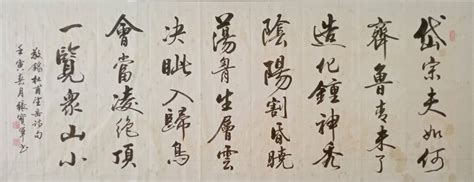 岱宗夫如何
齊魯青未了
造化鍾神秀
陰陽割昏曉
蕩胷生層雲
决眦入歸鳥
會當凌絶頂
一覽衆山小
敬錄杜甫望岳詩句
壬寅春月張寶軍